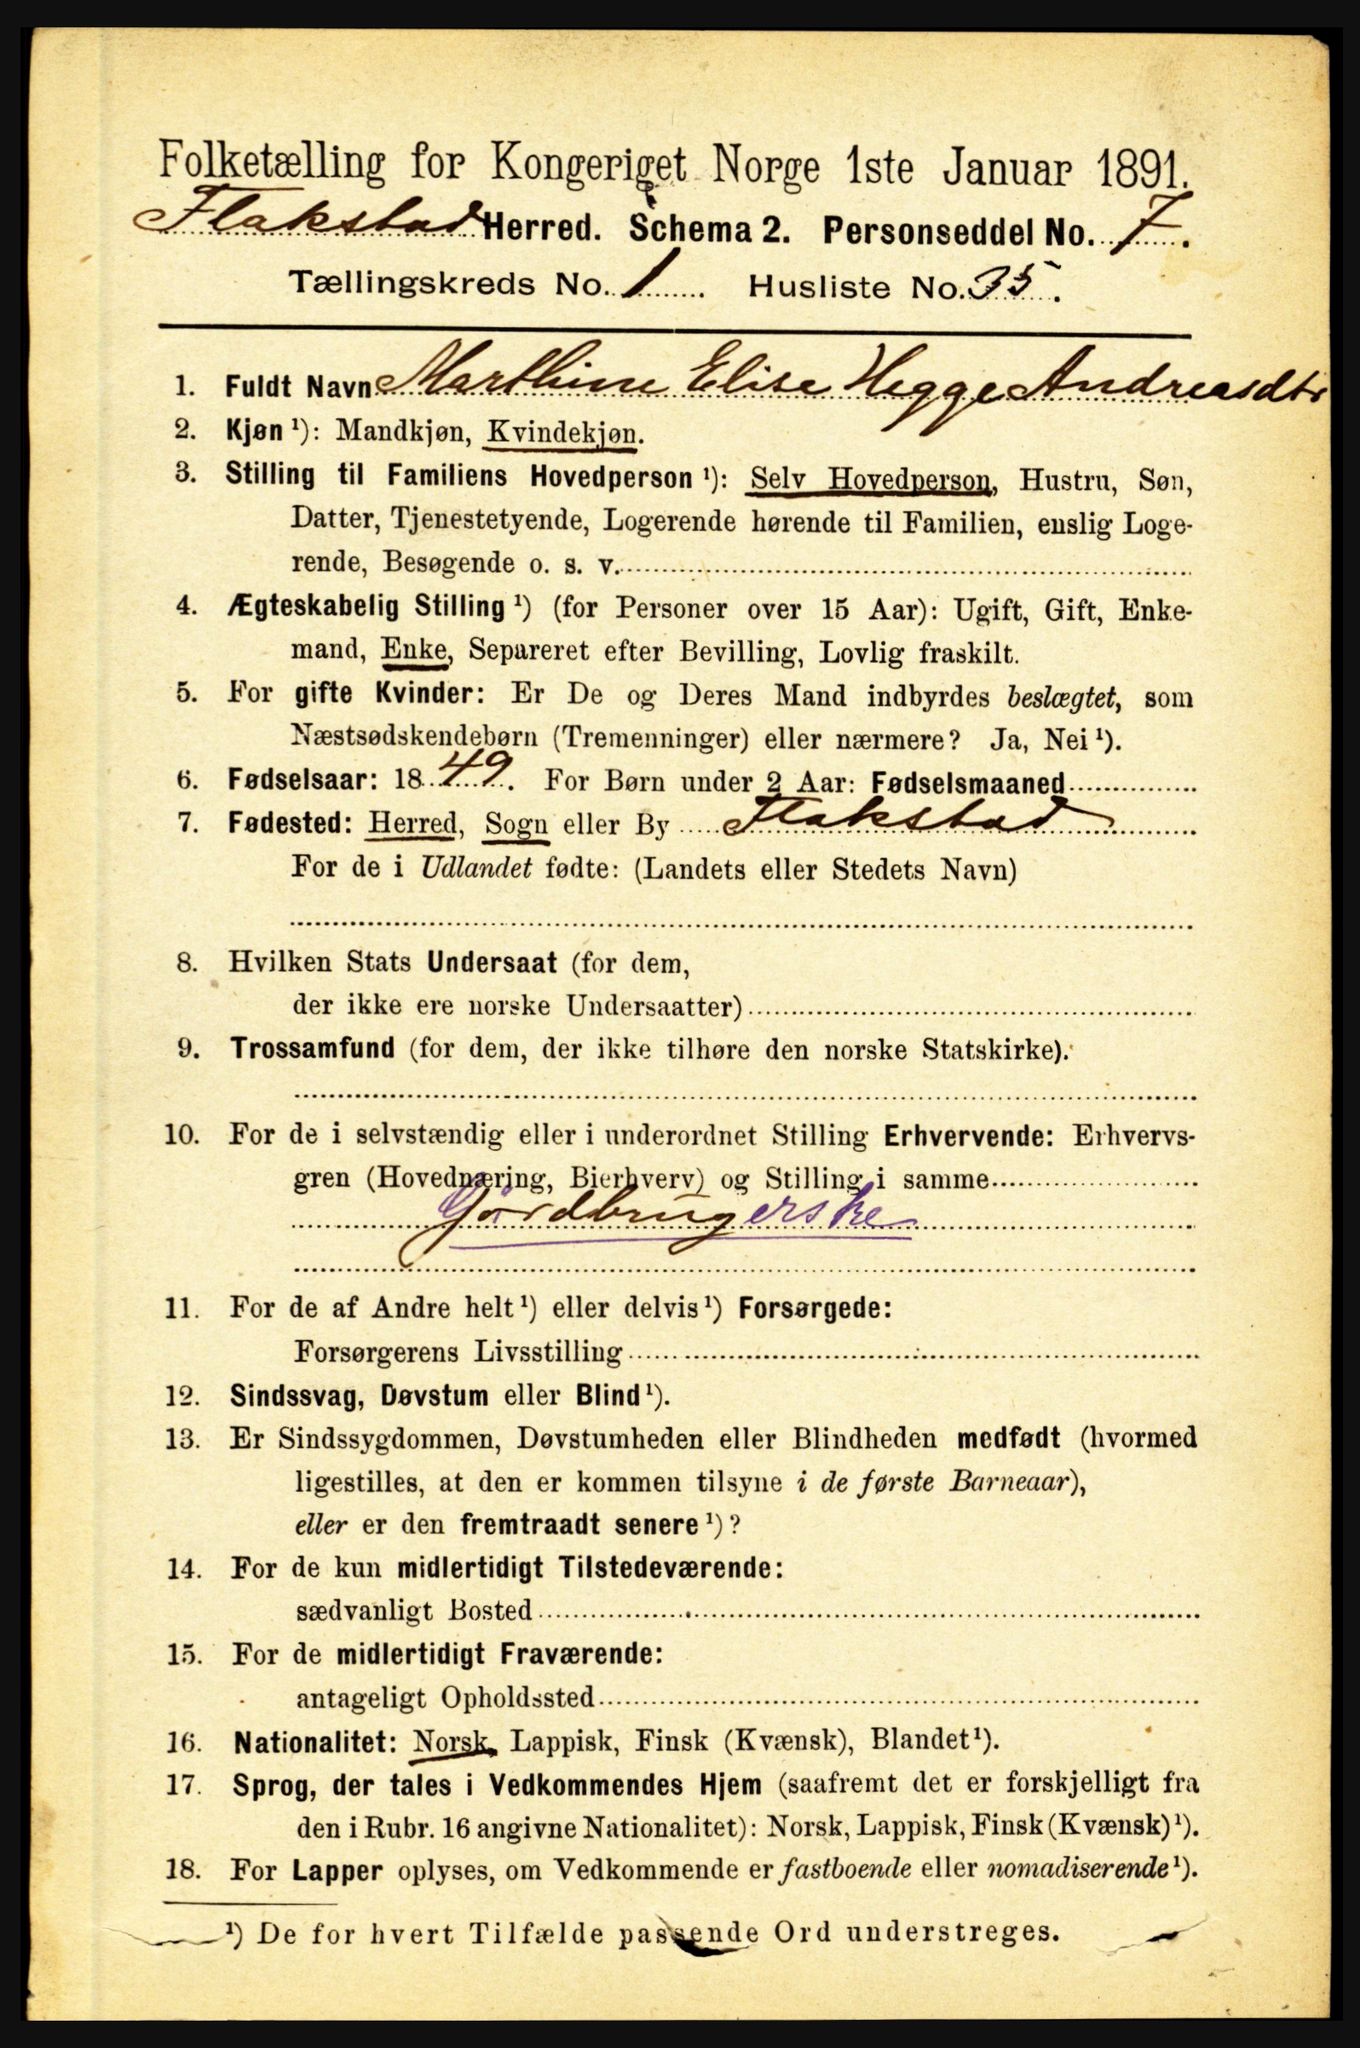 Folketælling for Kongeriget Norge 1ste Januar 1891.
Flakstad Herred. Schema 2. Personseddel No. 7.
Tællingskreds No. 1 Husliste No. 35.
1. Fuldt Navn Marthine Elise Hegge Andreasdtr
2. Kjøn ¹): Mandkjøn, Kvindekjøn.
3. Stilling til Familiens Hovedperson ¹): Selv Hovedperson, Hustru, Søn,
Datter, Tjenestetyende, Logerende hørende til Familien, enslig Loge-
rende, Besøgende o. s. v.
4. Ægteskabelig Stilling ¹) (for Personer over 15 Aar): Ugift, Gift, Enke-
mand, Enke, Separeret efter Bevilling, Lovlig fraskilt.
5. For gifte Kvinder: Er De og Deres Mand indbyrdes beslægtet, som
Næstsødskendebørn (Tremenninger) eller nærmere? Ja, Nei ¹).
6. Fødselsaar: 1849. For Børn under 2 Aar: Fødselsmaaned
7. Fødested: Herred, Sogn eller By Flakstad
For de i Udlandet fødte: (Landets eller Stedets Navn)
8. Hvilken Stats Undersaat (for dem,
der ikke ere norske Undersaatter)
9. Trossamfund (for dem, der ikke tilhøre den norske Statskirke).
10. For de i selvstændig eller i underordnet Stilling Erhvervende: Erhvervs-
gren (Hovednæring, Bierhverv) og Stilling i samme
Gårdbrugerske
11. For de af Andre helt ¹) eller delvis ¹) Forsørgede:
Forsørgerens Livsstilling
12. Sindssvag, Døvstum eller Blind ¹).
13. Er Sindssygdommen, Døvstumheden eller Blindheden medfødt (hvormed
ligestilles, at den er kommen tilsyne i de første Barneaar),
eller er den fremtraadt senere ¹)?
14. For de kun midlertidigt Tilstedeværende:
sædvanligt Bosted
15. For de midlertidigt Fraværende:
antageligt Opholdssted
16. Nationalitet: Norsk, Lappisk, Finsk (Kvænsk), Blandet ¹).
17. Sprog, der tales i Vedkommendes Hjem (saafremt det er forskjelligt fra
den i Rubr. 16 angivne Nationalitet): Norsk, Lappisk, Finsk (Kvænsk) ¹).
18. For Lapper oplyses, om Vedkommende er fastboende eller nomadiserende ¹).
¹) De for hvert Tilfælde passende Ord understreges.